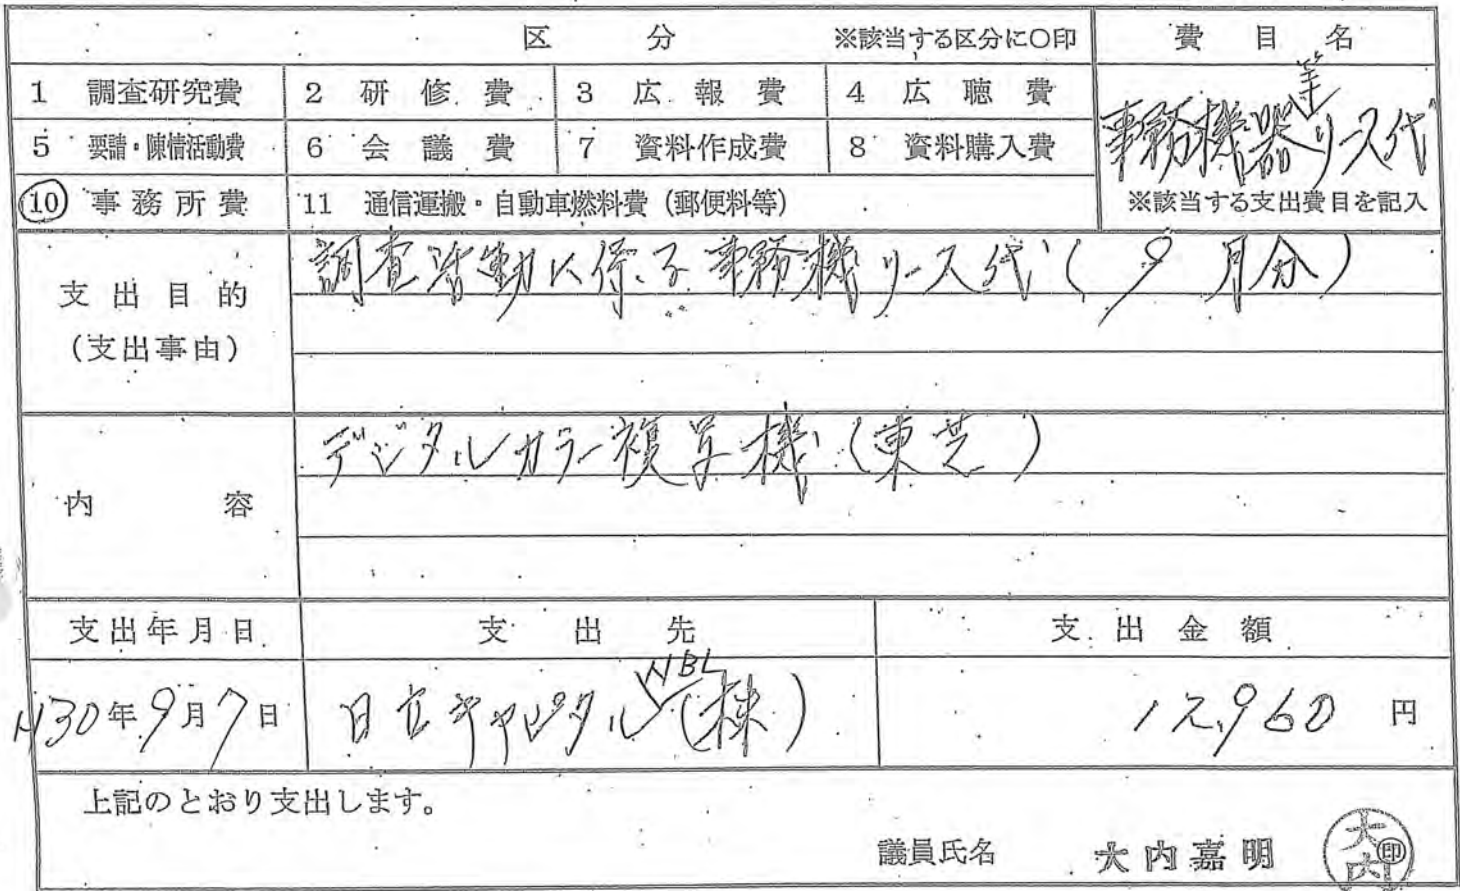 区 分 ※該当する区分に〇印 費目名
1 調査研究費 2 研修費 3 広報費 4 広聴費
等
事務機器リース代
5 要請・陳情活動費 6 会議費 7 資料作成費 8 資料購入費
10 事務所費 11 通信運搬・自動車燃料費（郵便料等） ※該当する支出費目を記入
支出目的
（支出事由）
調査活動に係る事務機リース代（9月分）
内容
デジタルカラー複写機（東芝）
支出年月日 支出先 支出金額
NBL
H30年9月7日 日立キャピタル（株） 12,960 円
上記のとおり支出します。
議員氏名 大内嘉明 大内 印